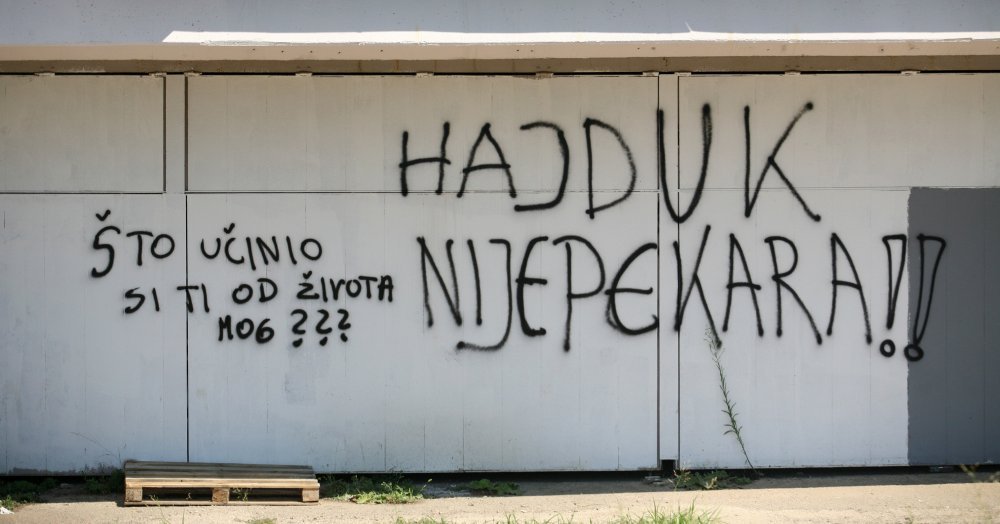 HAJDUK
NIJE PEKARA!!
ŠTO UČINIO
SI TI OD ŽIVOTA
MOG ???